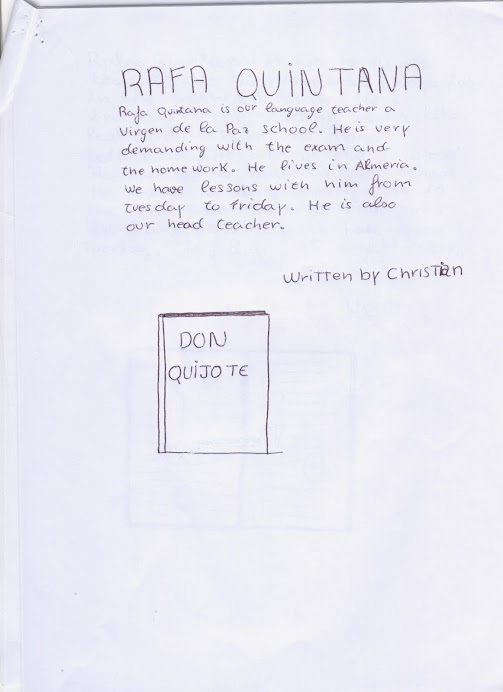 RAFA QUINTANA
Rafa Quintana is our language teacher a
Virgen de la Paz school. He is very
demanding with the exam and
the home work. He lives in Almeria.
We have lessons with him from
Tuesday to Friday. He is also
our head teacher.
Written by Christian
DON
QUIJOTE